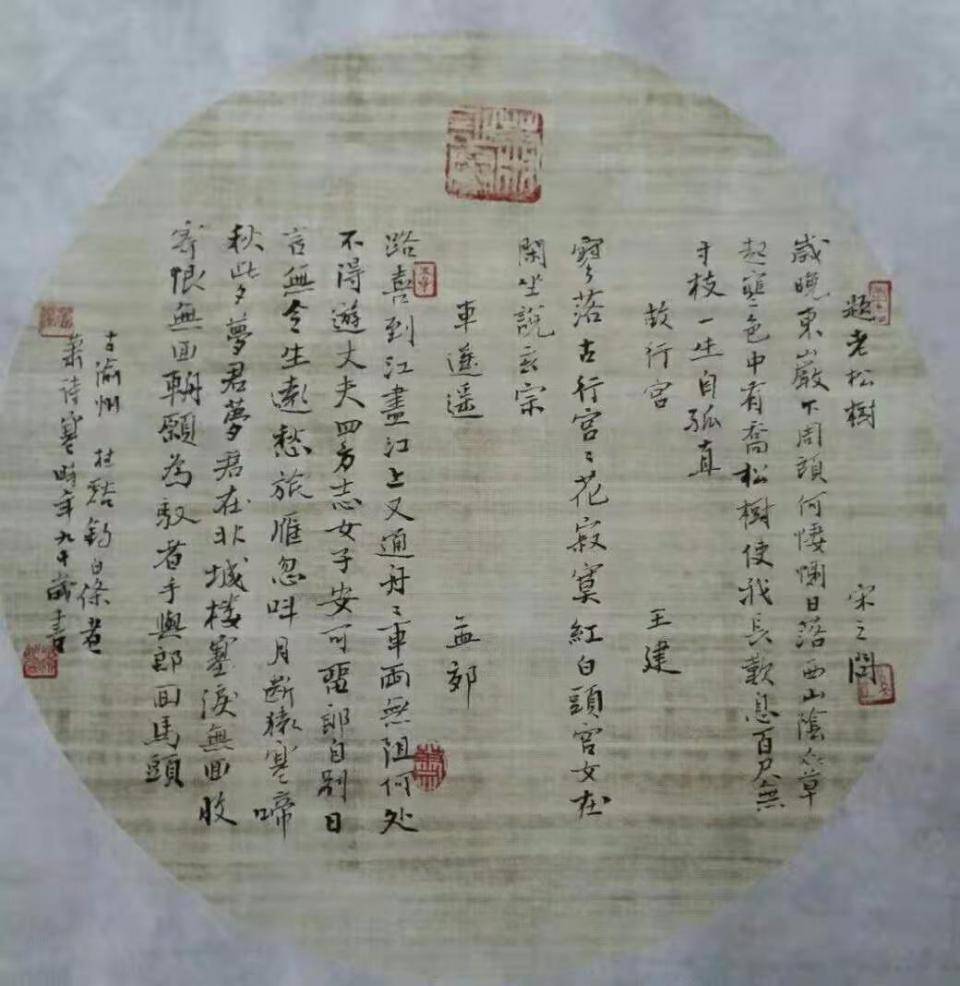 題老松樹 宋之問
歲晚東巖下周顧何悽惻日落西山陰衆草
起寒色中有喬松樹使我長歎息百尺無
寸枝一生自孤直
故行宮 王建
寥落古行宮〻花寂寞紅白頭宮女在
閑坐說玄宗
車遙遥 孟郊
路喜到江盡江上又通舟〻車兩無阻何处
不得遊丈夫四方志女子安可畱郎自别日
言無令生遠愁旅雁忽叫月断猿寒啼
秋此夕夢君夢君在城楼寒淚無回收
寄恨無回輈願為馭者手與郎回馬頭
古渝州
時年九十歲書